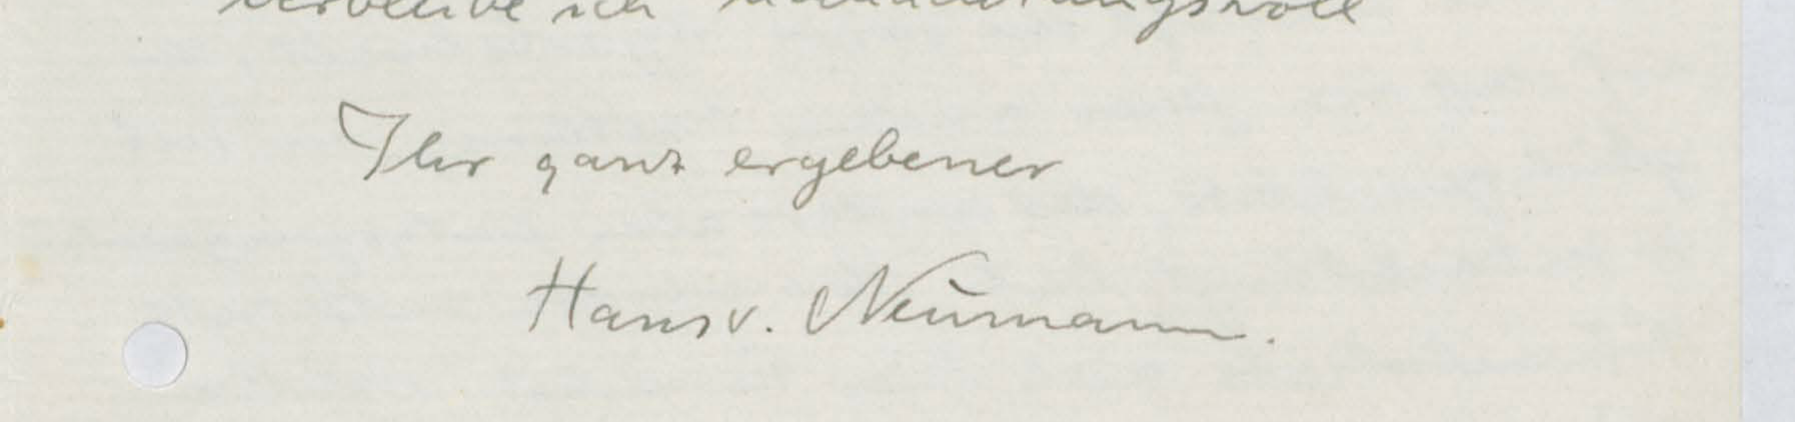 verbleibe ich hochachtungsvoll
Ihr ganz ergebener
Hans v. Neumann.